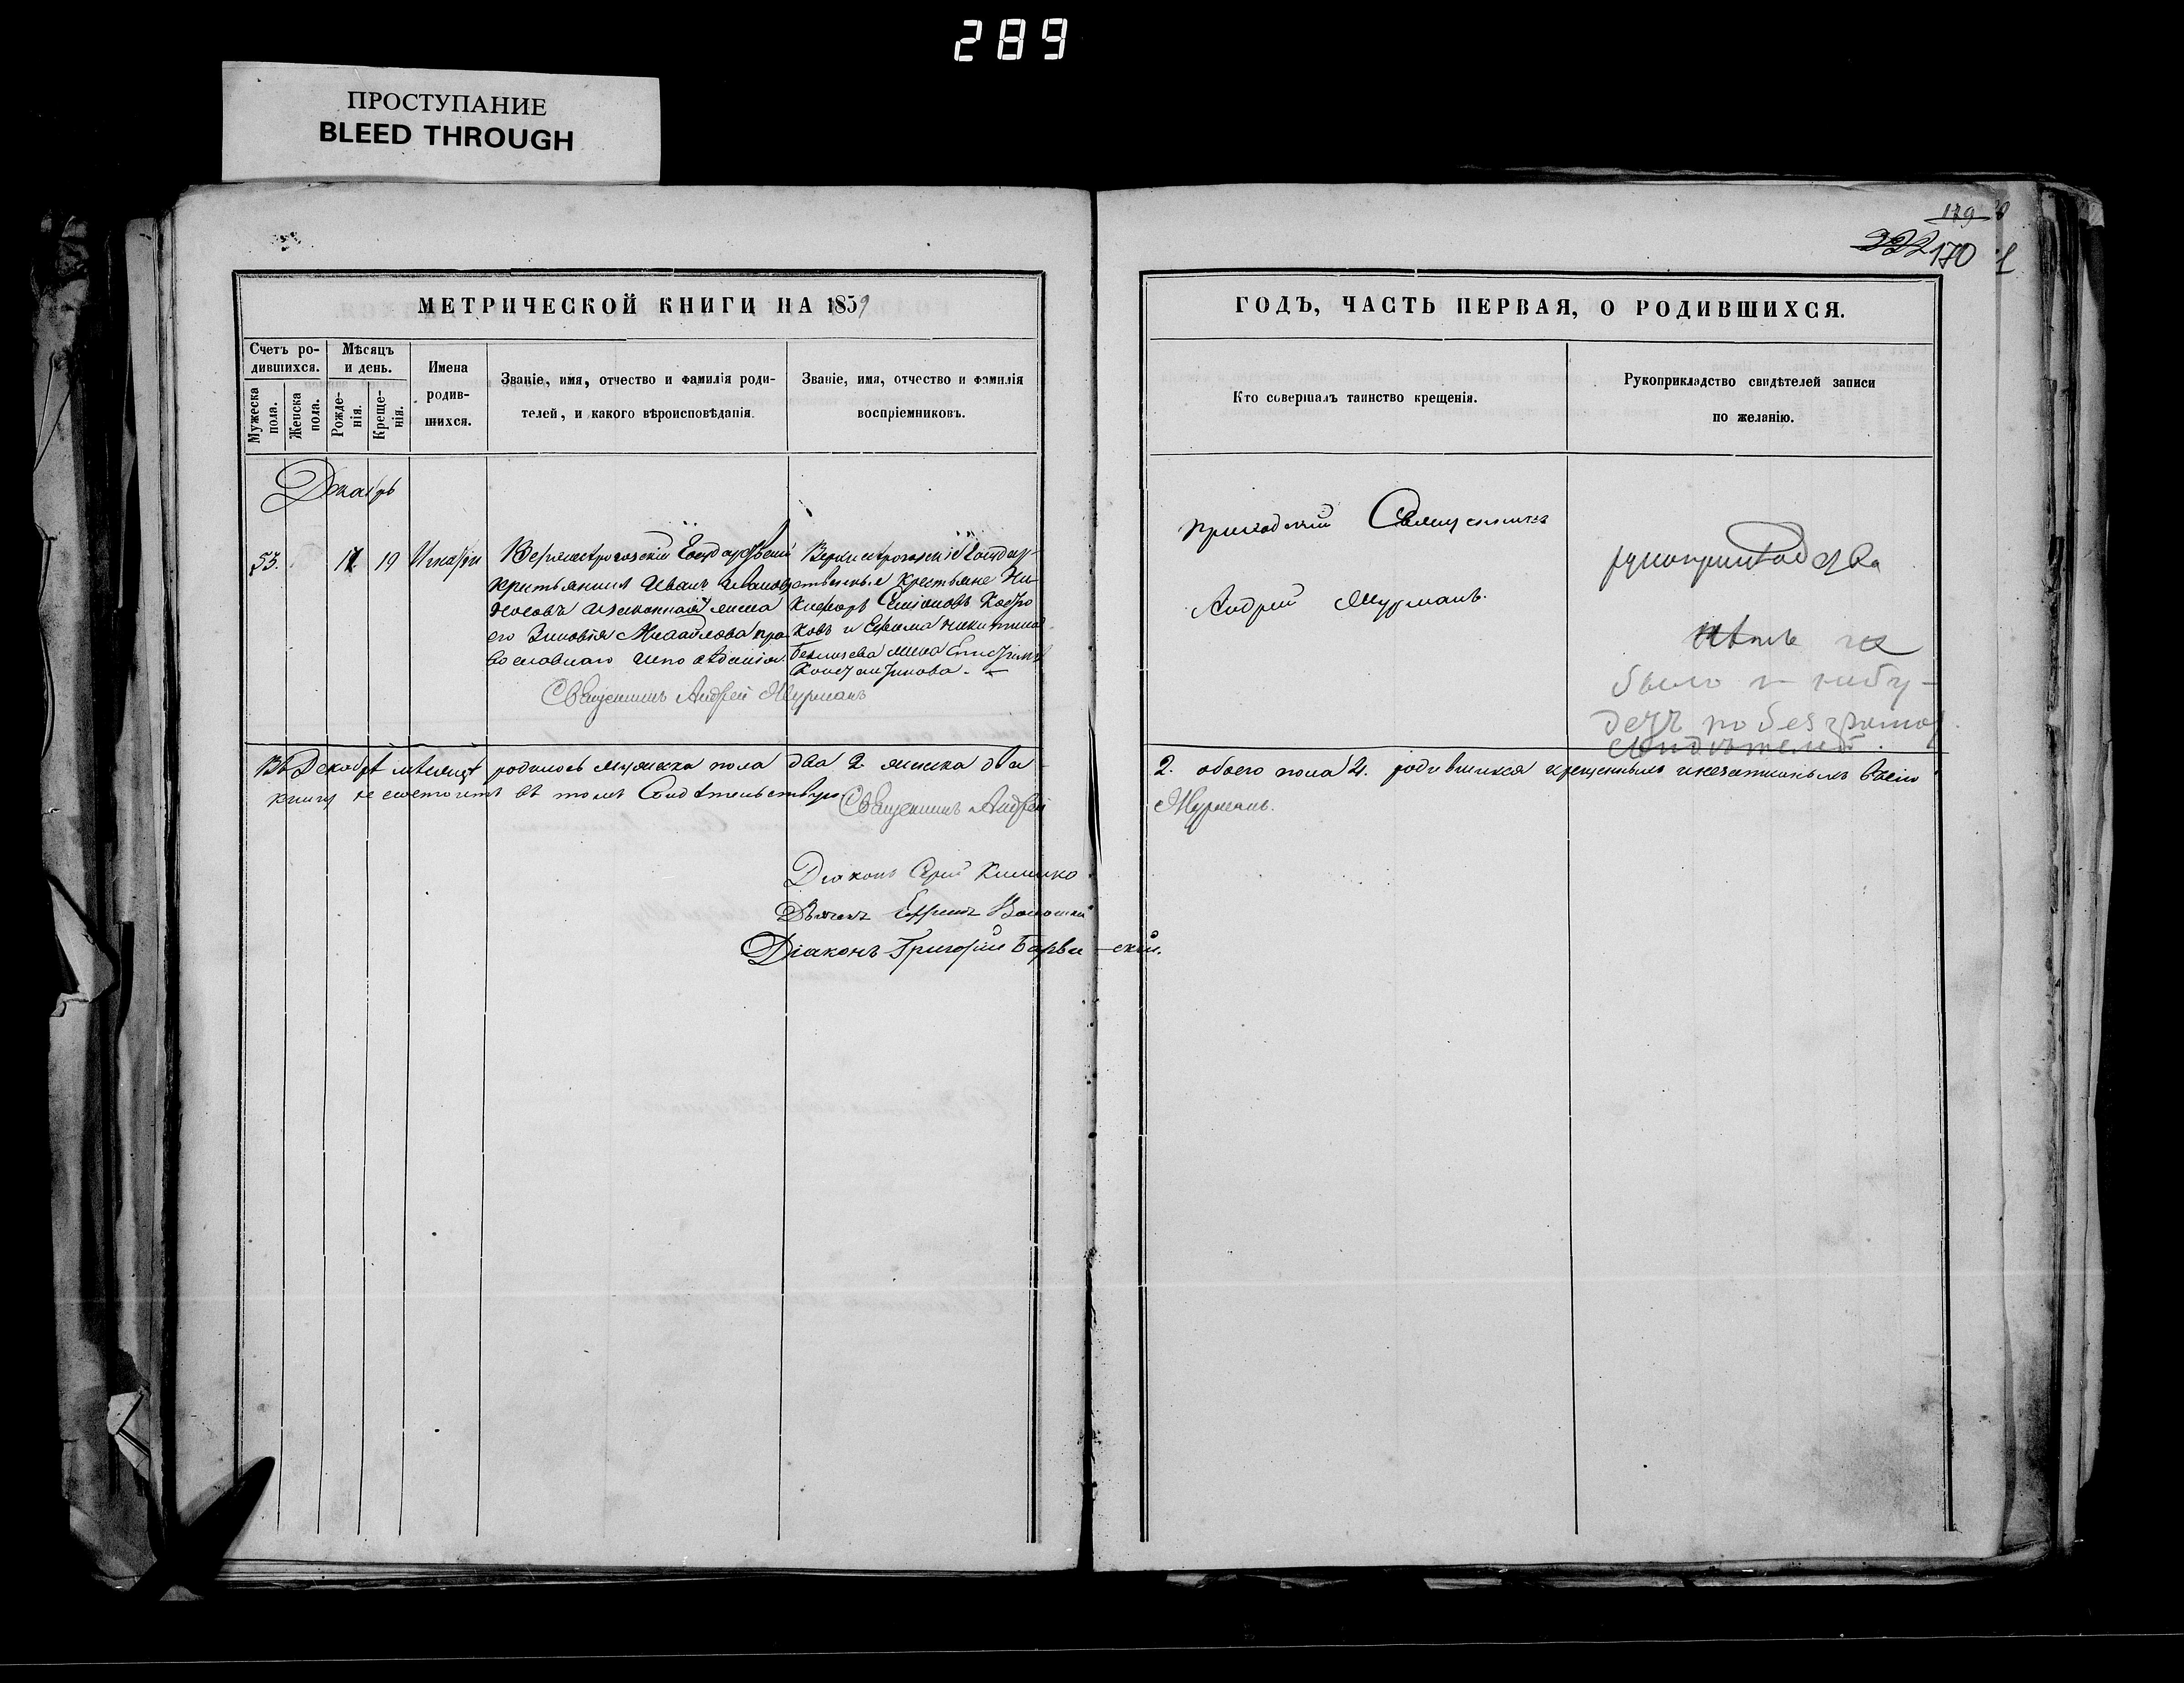 289
ПРОСТУПАНИЕ
BLEED THROUGH
179
222 170
МЕТРИЧЕСКОЙ КНИГИ НА 1859
ГОДЪ, ЧАСТЬ ПЕРВАЯ, О РОДИВШИХСЯ.
Счетъ ро-
дившихся.
Мужеска
пола.
Женска
пола.
Мѣсяцъ
и день.
Рожде-
нія.
Креще-
нія.
Имена
родив-
шихся.
Званіе, имя, отчество и фамилія роди-
телей, и какого вѣроисповѣданія.
Званіе, имя, отчество и фамилія
воспріемниковъ.
Кто совершалъ таинство крещенія.
Рукоприкладство свидѣтелей записи
по желанію.
Декабрь
53.
19
крестьянинъ Иванъ Ивановъ
Носовъ и законная жена
его Зиновія Михайлова пра-
вославнаго исповѣданія.
Священникъ Андрей Мурманъ
ственные крестьяне Ни-
кифоръ
ковъ и
жена
Константинова.
приходскій Священникъ
Андрей Мурманъ.
рукоприкладства
было и небу-
детъ по безграмот.
свидѣтелей.
Въ Декабрѣ мѣсяцѣ родилось мужеска пола два 2. женска два
2. обоего пола 4. родившихся крещенныхъ и незаписанныхъ въ сію
книгу не состоитъ въ томъ Свидѣтельствую Священникъ Андрей
Мурманъ.
Діаконъ
Дьячокъ
Діаконъ Григорій Барви-скій.